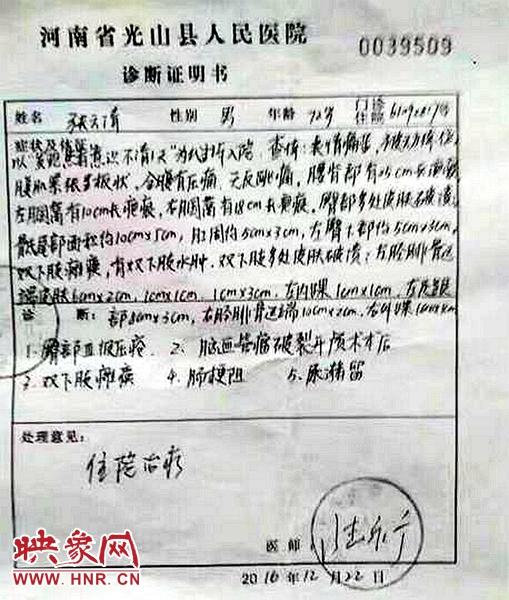 河南省光山县人民医院
0039509
诊断证明书
姓名 性别 男 年龄 72岁 门诊 住院
症状及体征
入院 查体: 表情痛苦
腹肌紧张呈板状, 全腹有压痛, 无反跳痛, 腰背部有25cm长
左腘窝有10cm长疤痕, 右腘窝有18cm长疤痕, 臀部多处皮肤破溃,
骶尾部面积约10cm×5cm, 肛周约5cm×3cm, 左臀上部约5cm×3cm,
双下肢瘫痪, 有双下肢水肿. 双下肢多处皮肤破溃: 左胫腓骨远
端皮肤6cm×2cm, 1cm×1cm, 1cm×3cm, 左内踝1cm×1cm, 左足
诊 断: 部8cm×3cm, 右胫腓骨远端10cm×2cm, 右外踝
1. 臀部Ⅲ级压疮. 2. 脑血管瘤破裂开颅术术后
3. 双下肢瘫痪 4. 肠梗阻 5. 尿潴留
处理意见:
住院治疗
医师
2016年12月22日
映象网
WWW.HNR.CN